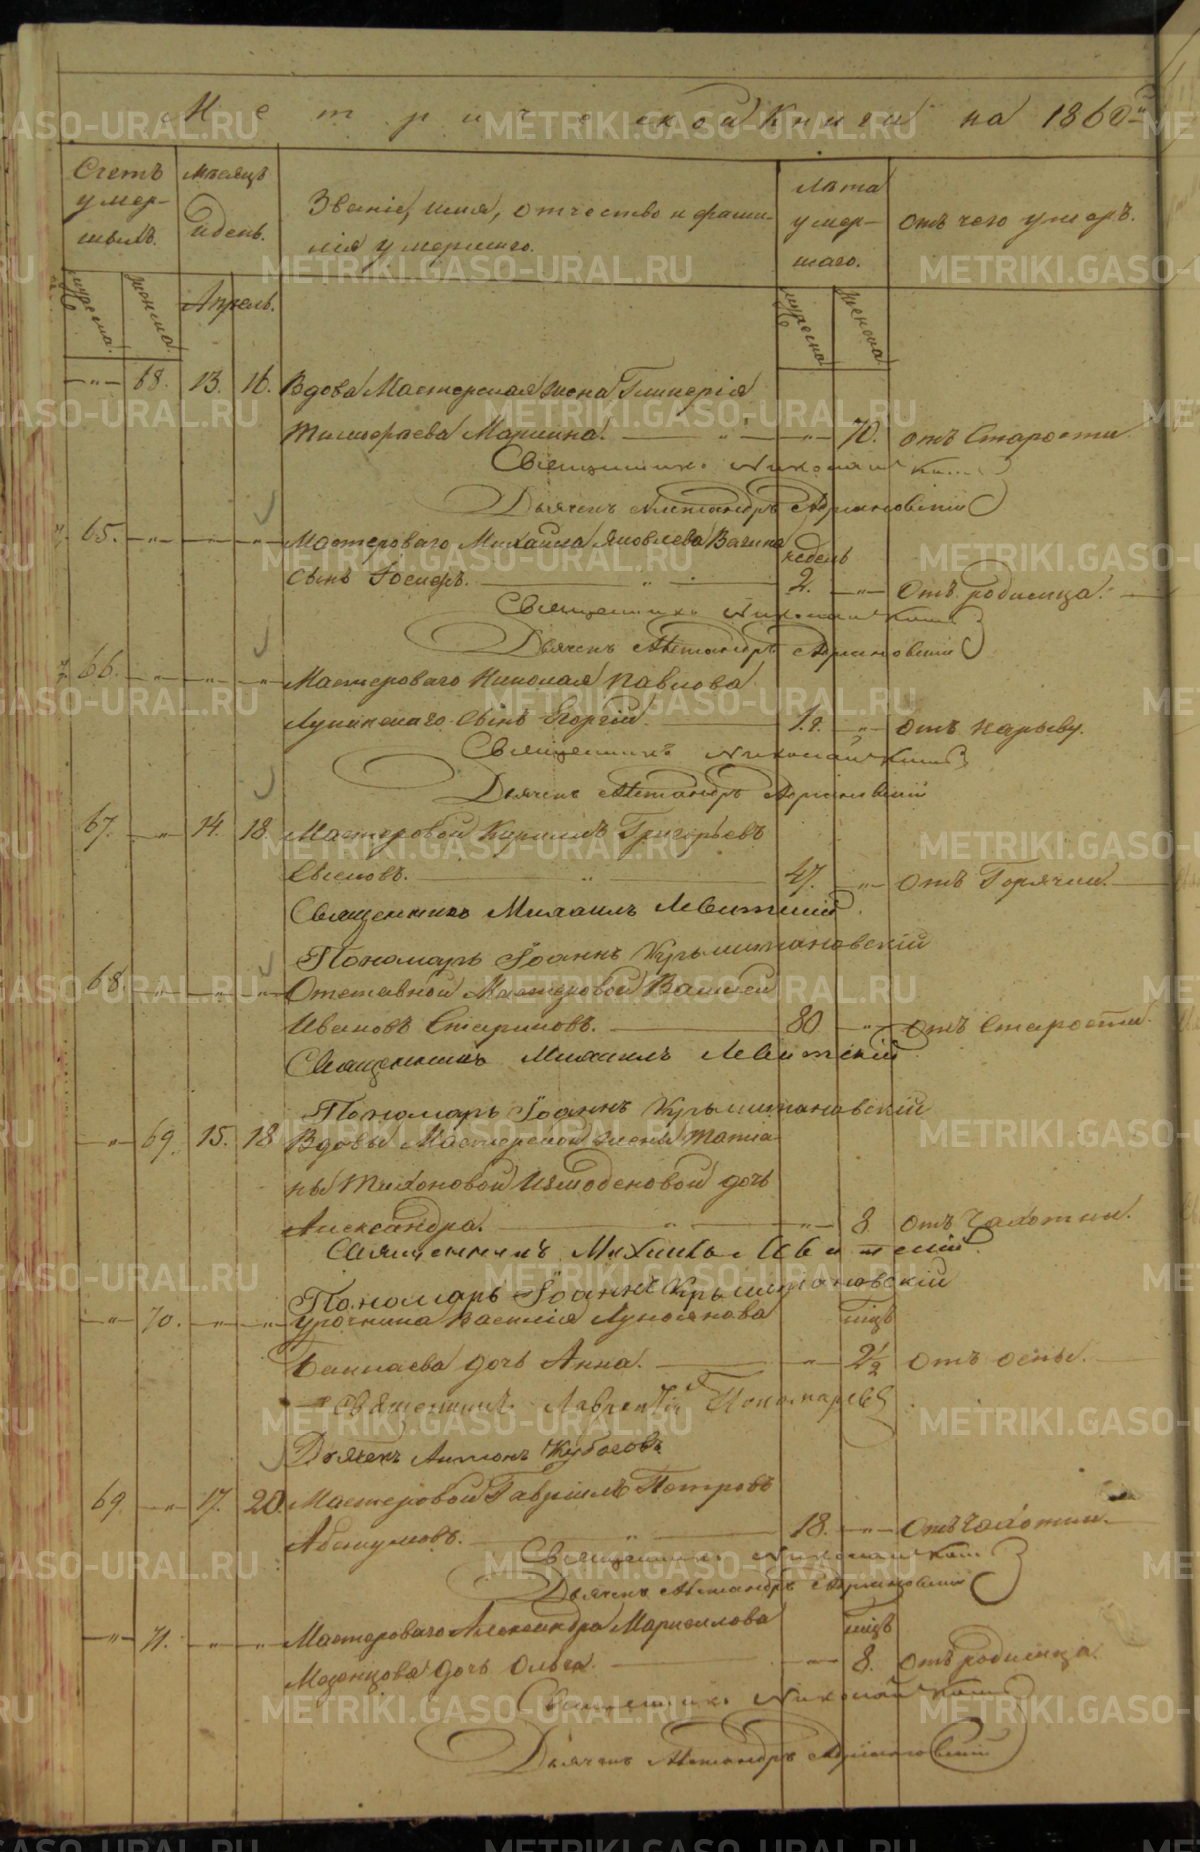 Метрической Книги на 1860й
Счетъ умершихъ.
Мѣсяцъ и день.
Званіе, имя, отчество и фамилія умершаго.
Лѣта умершаго.
отъ чего умеръ.
мужеска.
женска.
Апрель.
мужеска
женска
—"— 68. 13. 16. Вдова Мастерская жена Гликерія
Тимофеева Маркина. —"— 70. отъ Старости
Священникъ Николай
Дьячекъ Александръ Адріановскій
65. —"— —"— Мастероваго Михаила Яковлева Вагина
недель
сынъ Іосифъ. — " — 2. —"— Отъ родимца.
Священникъ Николай
Дьячекъ Александръ Адріановскій
66. —"— —"— —"— Мастероваго Николая Павлова
сынъ Георгій. — 1.г. —"— отъ нарыву.
Священникъ Николай
Дьячекъ Александръ Адріановскій
67. —"— 14. 18. Мастеровой Кириллъ Григорьевъ
— " — 47. —"— отъ Горячки.
Священникъ Михаилъ Левитскій
Пономарь Іоаннъ Крыштановскій
68. —"— —"— —"— Отставной Мастеровой Василей
Ивановъ Стариковъ. — 80 —"— отъ Старости.
Священникъ Михаилъ Левитскій
Пономарь Іоаннъ Крыштановскій
—"— 69. 15. 18 Вдовы Мастерской жены Татіа-
ны Тихоновой Измоденовой дочь
Александра. — " — —"— 8 отъ Чахотки.
Священникъ Михаилъ Левитскій
Пономарь Іоаннъ Крыштановскій
—"— 70. —"— —"— Урочника Василія Лукоянова
мцъ
дочь Анна. — —"— 2½ отъ оспы.
Священникъ Лаврентій Пономаревъ
Дьячекъ Антонъ
69. —"— 17. 20. Мастеровой Гавріилъ Петровъ
Абакумовъ. — " — 18. —"— Отъ Чахотки.
Священникъ Николай
Дьячекъ Александръ Адріановскій
—"— 71. —"— —"— Мастероваго Александра Маркелова
мцъ
дочь Ольга. — —"— 8. отъ родимца.
Священникъ Николай
Дьячекъ Александръ Адріановскій
METRIKI.GASO-URAL.RU